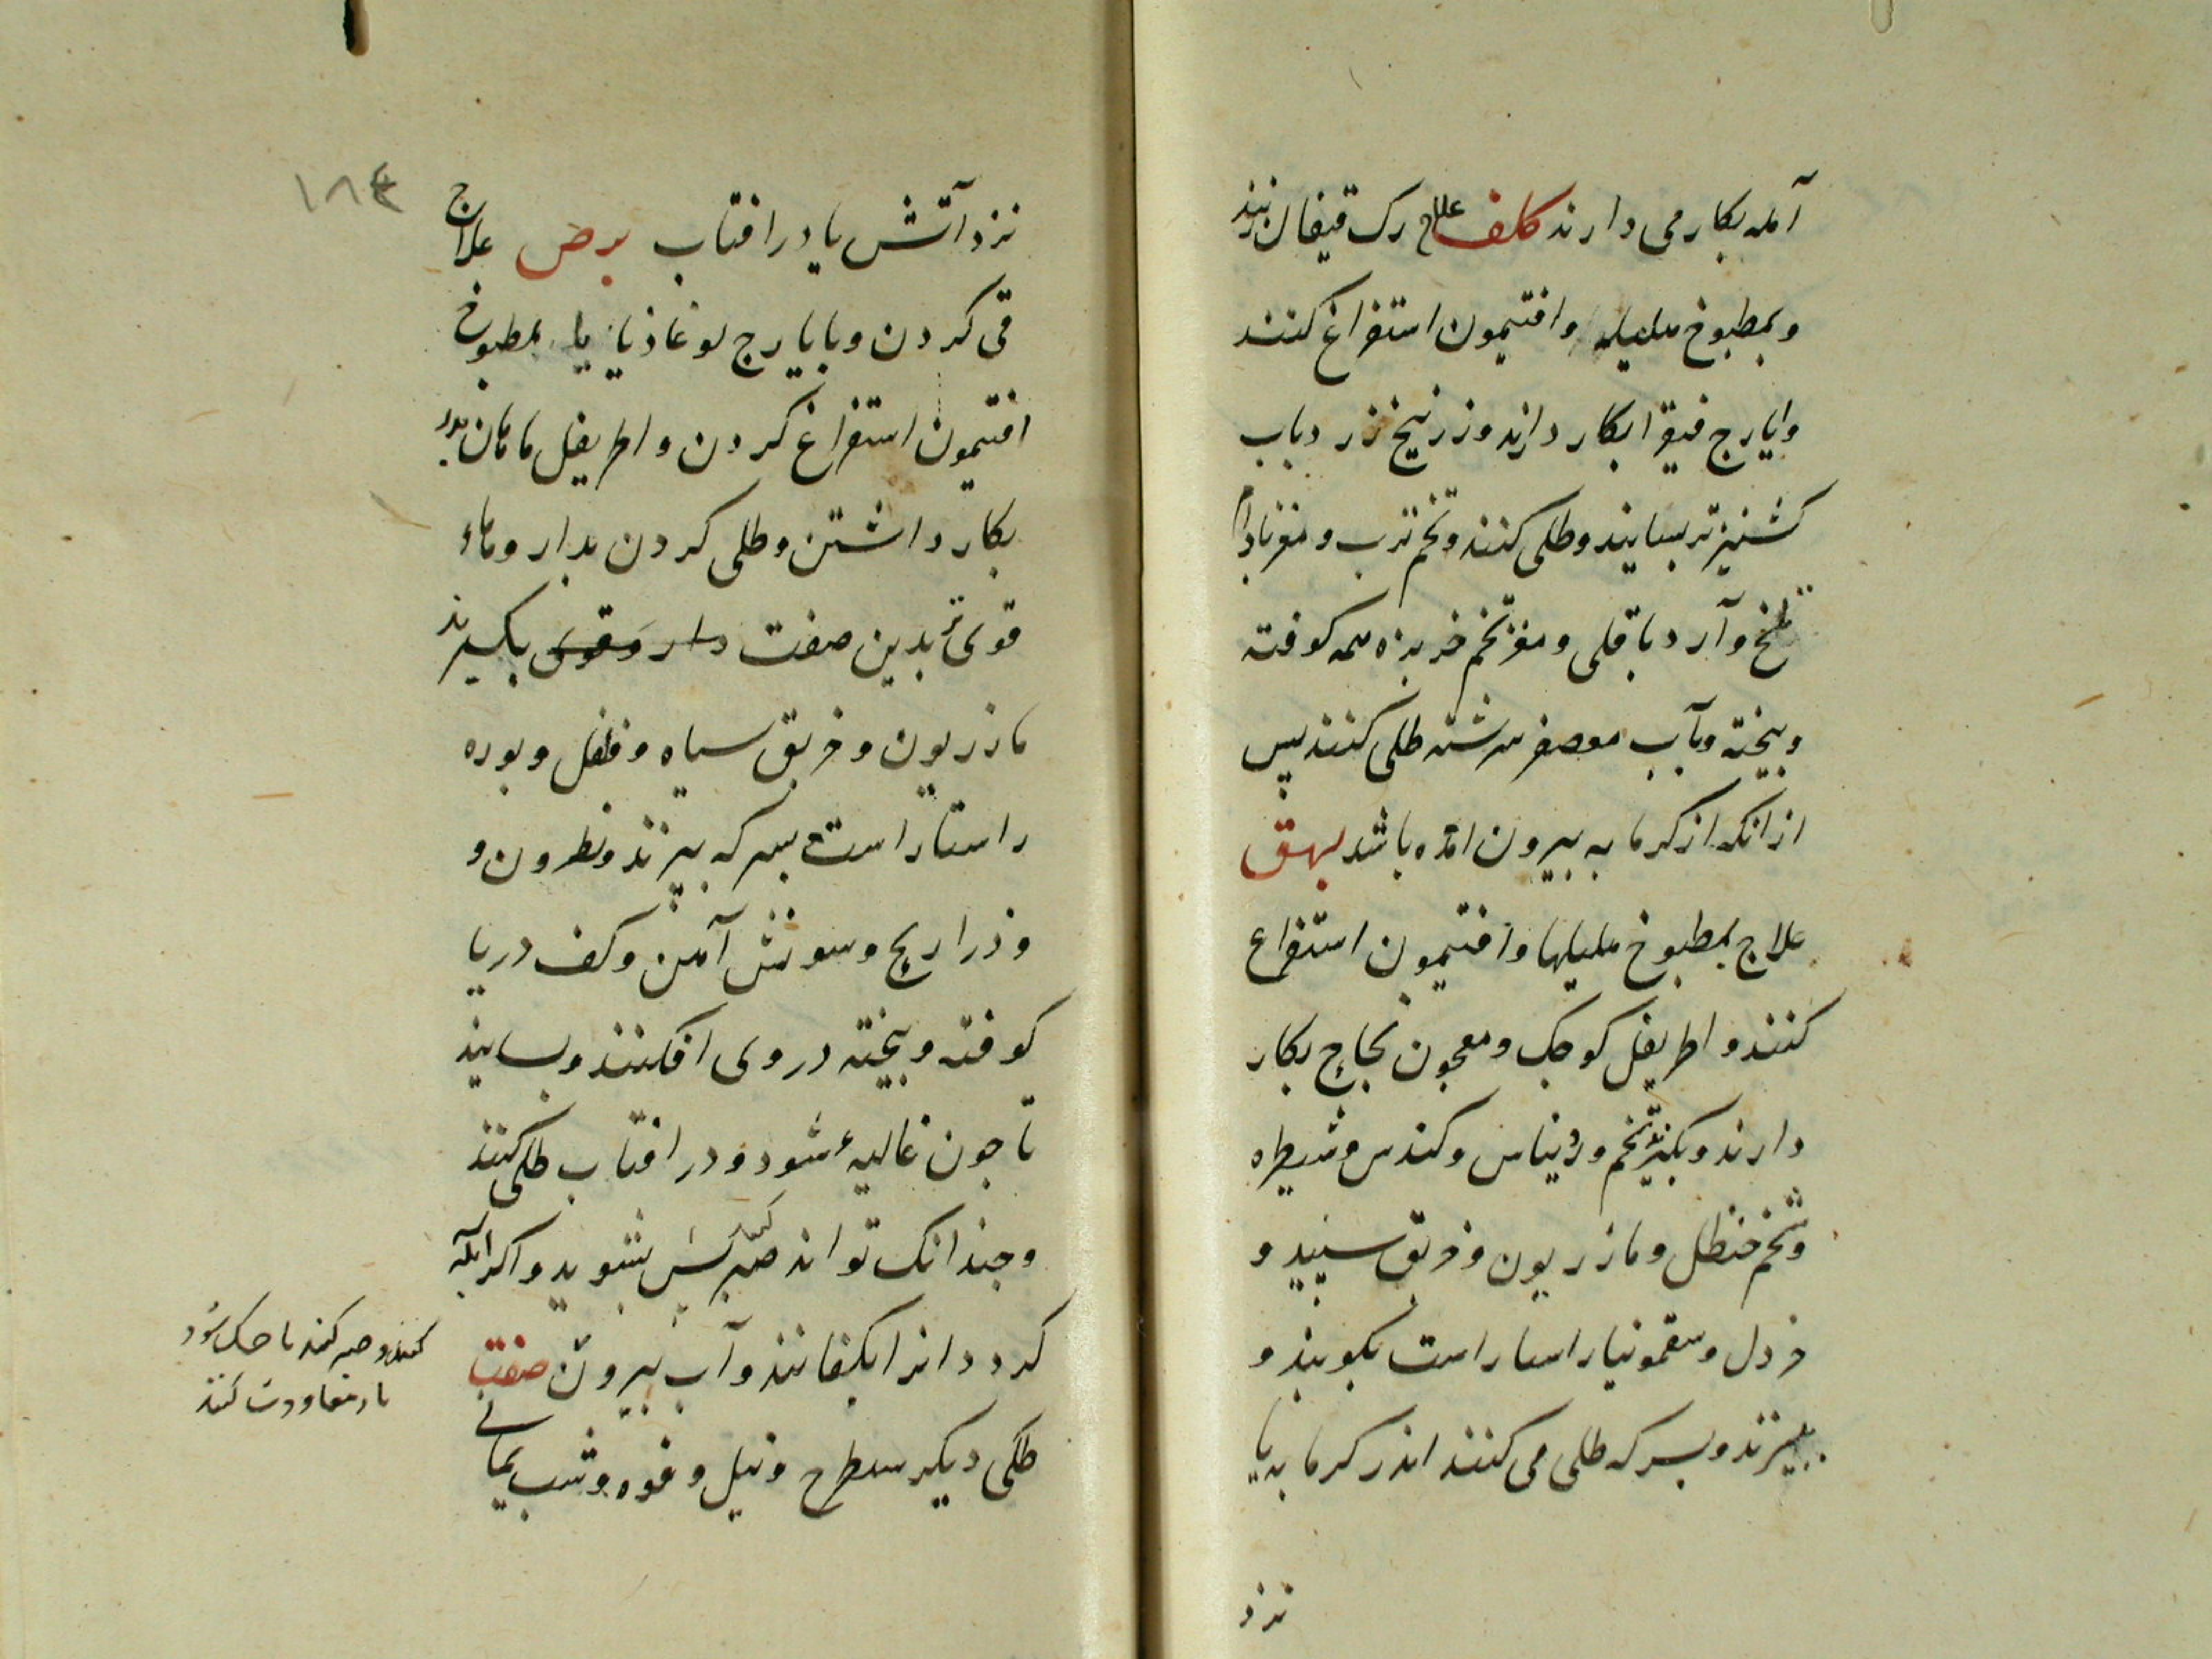 آمله بکار می دارند کلف علاج رک قیفال زنند
و بمطبوخ هلیله وافتیمون استفراغ کنند
وایارج فیقرا بکار دارند وزرنیخ زرد باب
کشنیز تر بسایند وطلی کنند وتخم ترب ومغز بادام
تلخ وآرد باقلی ومغز تخم خربزه همه کوفته
وبیخته وبآب معصفر سرشته طلی کنند پس
ازانکه از کرمابه بیرون امده باشد بهق
علاج بمطبوخ هلیلها وافتیمون استفراغ
کنند واطریفل کوجک ومعجون نجاح بکار
دارند وبکیرند تخم وکندس وشیطره
وشحم حنظل ومازریون وخربق سپید و
خردل وسقمونیا راستاراست بکوبند و
ببیزند وبسرکه طلی می کنند اندر کرمابه یا
نزد
۱۸۴
نزد آتش یا در افتاب برص علاج
قی کردن وبایارج لوغاذیا یا بمطبوخ
افتیمون استفراغ کردن واطریفل
بکار داشتن وطلی کردن بداروهاء
قوی بدین صفت دارو قوی بکیرند
مازریون وخربق سیاه وفلفل وبوره
راستاراست بسرکه بپزند ونطرون و
وذراریح وسونش آهن وکف دریا
کوفته وبیخته در وی افکنند وبسایند
تا جون غالیه شود ودر افتاب طلی کنند
وجندانک تواند صبر کند پس بشوید واکر ابله
کرد انرا بکفانند وآب بیرون صفت
طلی دیکر شیطرج ونیل وفوه وشب یمانی
کنند وصبر کنند تا خشک شود
باز معاودت کنند